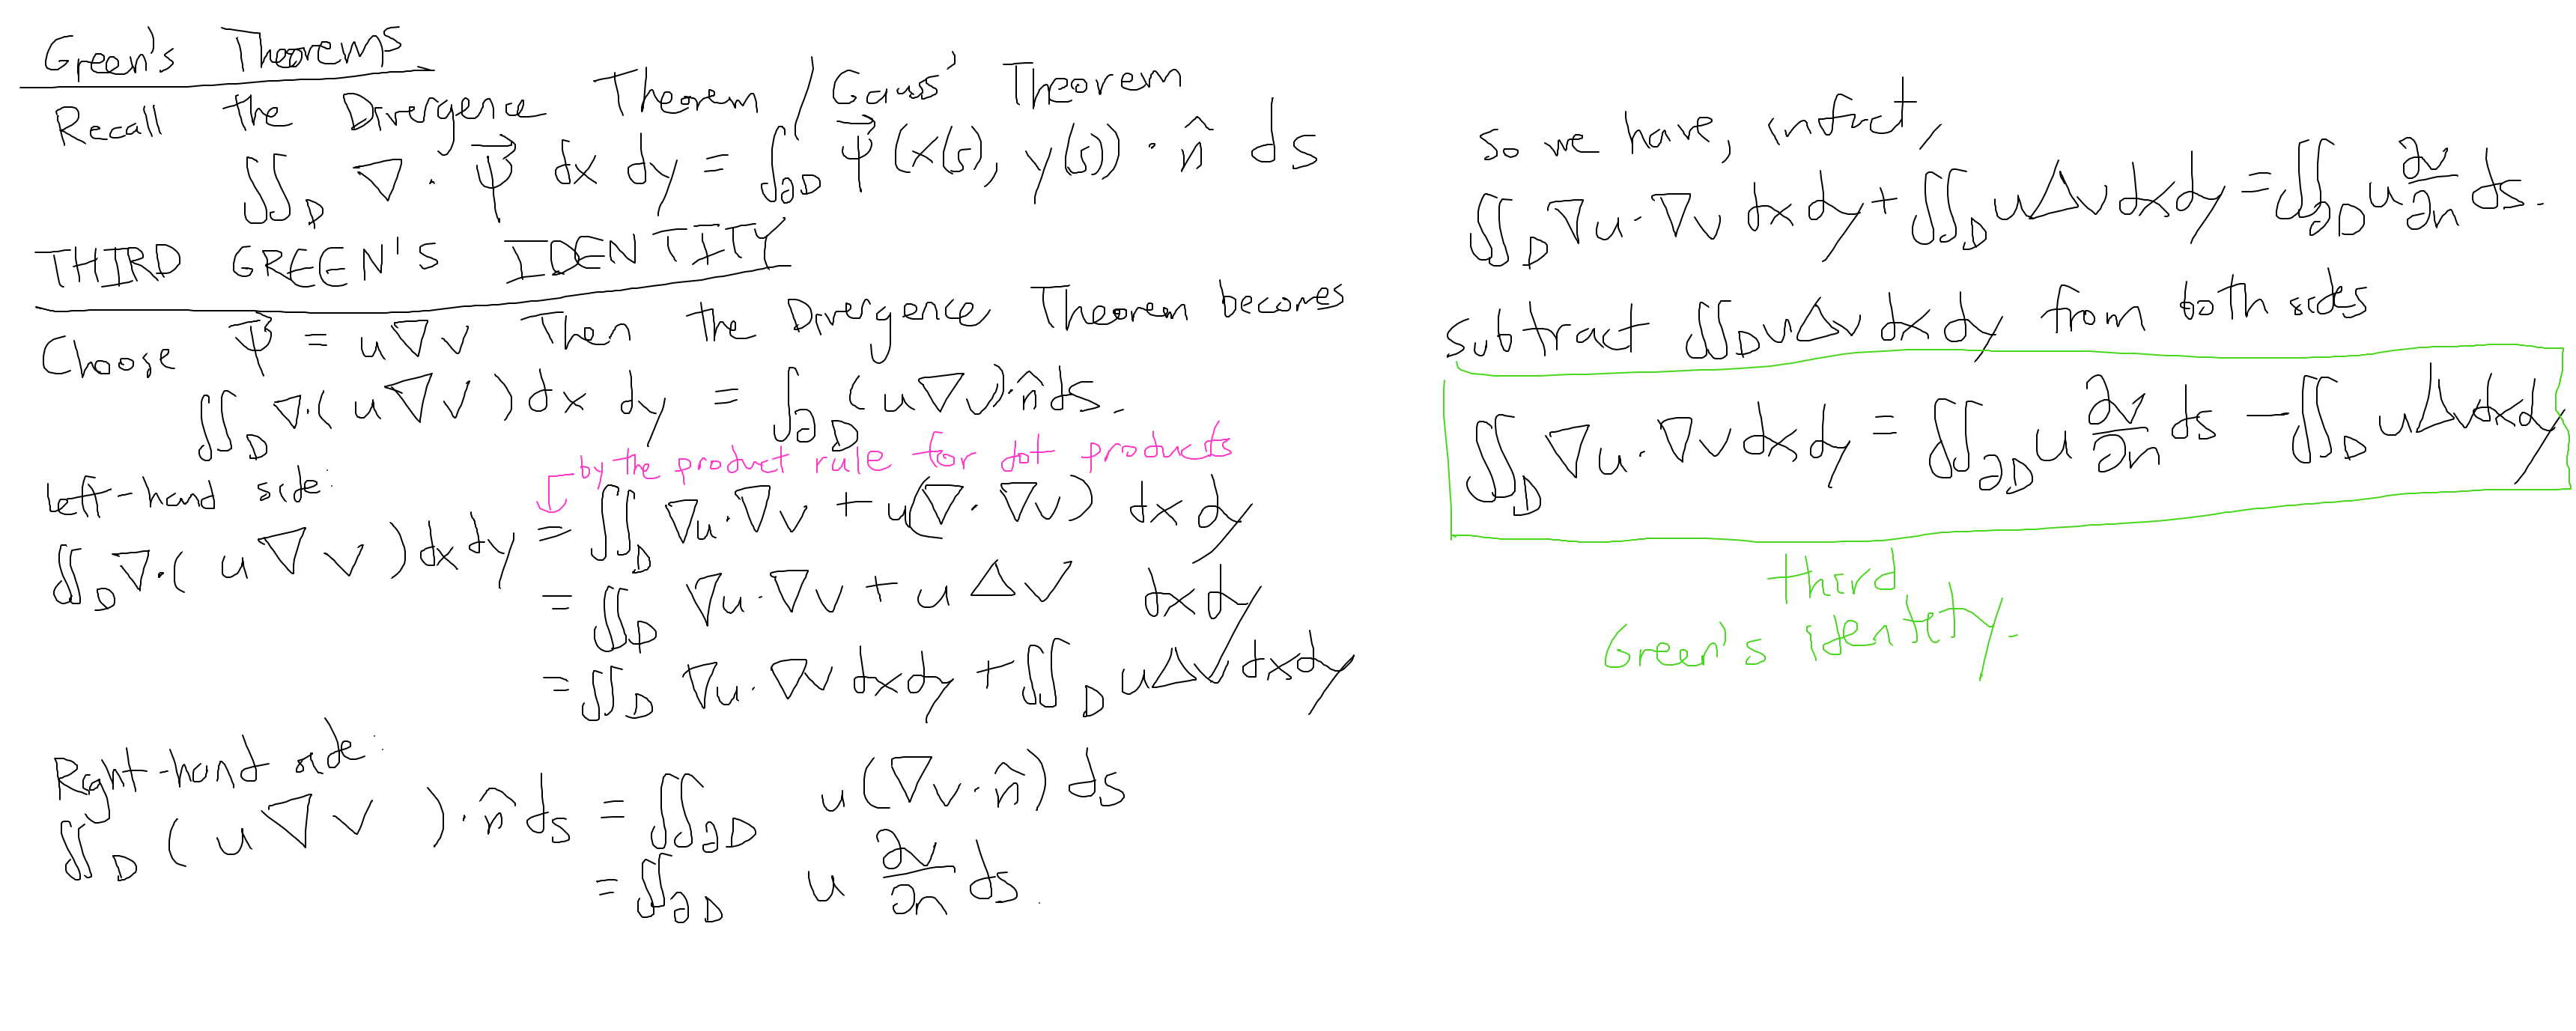 Green's Theorems
Recall the Divergence Theorem / Gauss' Theorem
∬_D ∇ · Ψ⃗ dx dy = ∫_∂D Ψ⃗ (x(s), y(s)) · n̂ ds
THIRD GREEN'S IDENTITY
Choose Ψ⃗ = u∇v Then the Divergence Theorem becomes
∬_D ∇·(u∇v) dx dy = ∫_∂D (u∇v)·n̂ ds.
by the product rule for dot products
Left-hand side:
∬_D ∇·(u∇v) dx dy = ∬_D ∇u·∇v + u(∇·∇v) dx dy
= ∬_D ∇u·∇v + u Δv dx dy
= ∬_D ∇u·∇v dx dy + ∬_D uΔv dx dy
Right-hand side:
∬_D (u∇v)·n̂ ds = ∬_∂D u(∇v·n̂) ds
= ∬_∂D u ∂v/∂n ds.
So we have, infact,
∬_D ∇u·∇v dx dy + ∬_D uΔv dx dy = ∬_∂D u ∂v/∂n ds.
subtract ∬_D uΔv dx dy from both sides
∬_D ∇u·∇v dx dy = ∬_∂D u ∂v/∂n ds − ∬_D uΔv dx dy
third
Green's identety.